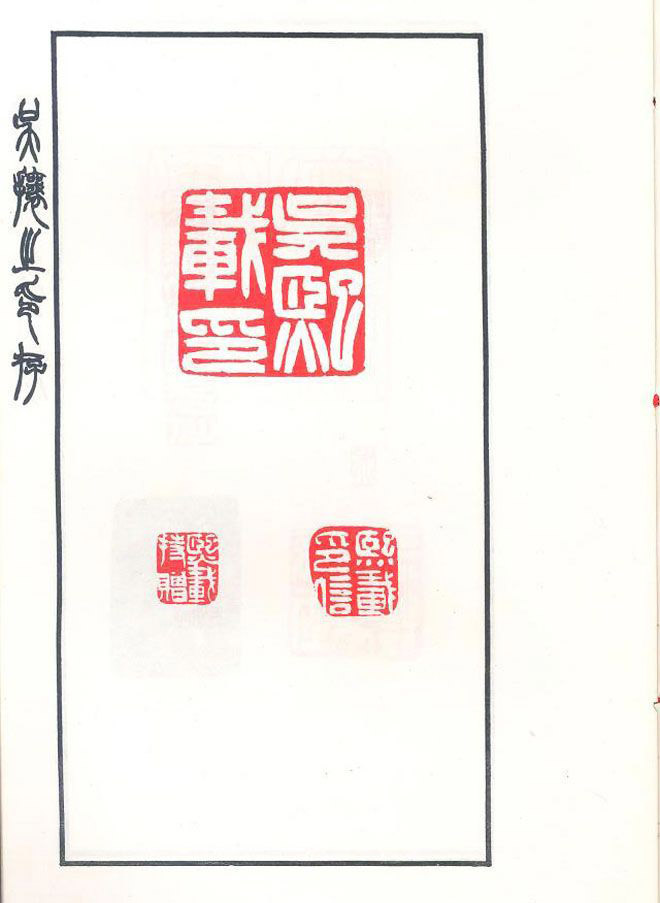 吳讓之印存
吳熙載印
熙載印信
熙載持贈